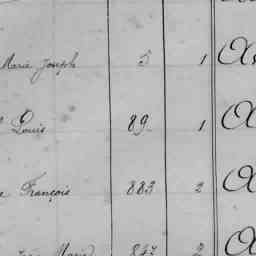 Marie Joseph 5 1
Louis 89 1
François 883 2
Marie 847 2